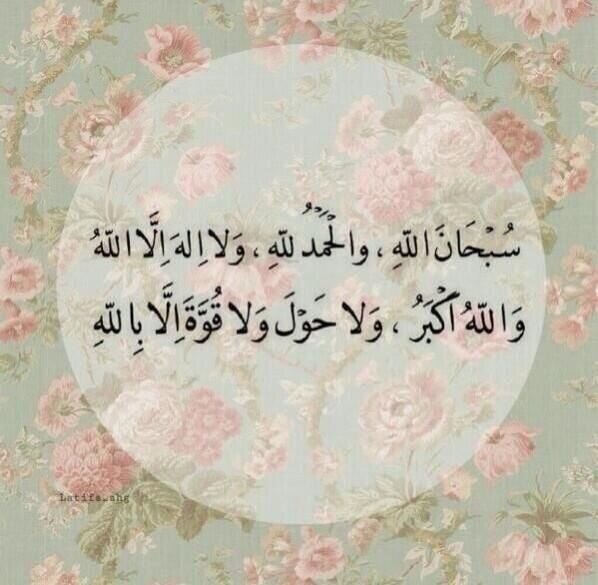 سُبْحَانَ اللّٰهِ ، والْحَمْدُ لِلّٰهِ ، وَلا اِلهَ اِلَّا اللّٰهُ
وَاللّٰهُ اَكْبَرُ ، وَلا حَوْلَ وَلا قُوَّةَ اِلَّا بِاللّٰهِ
Latifa_ahg